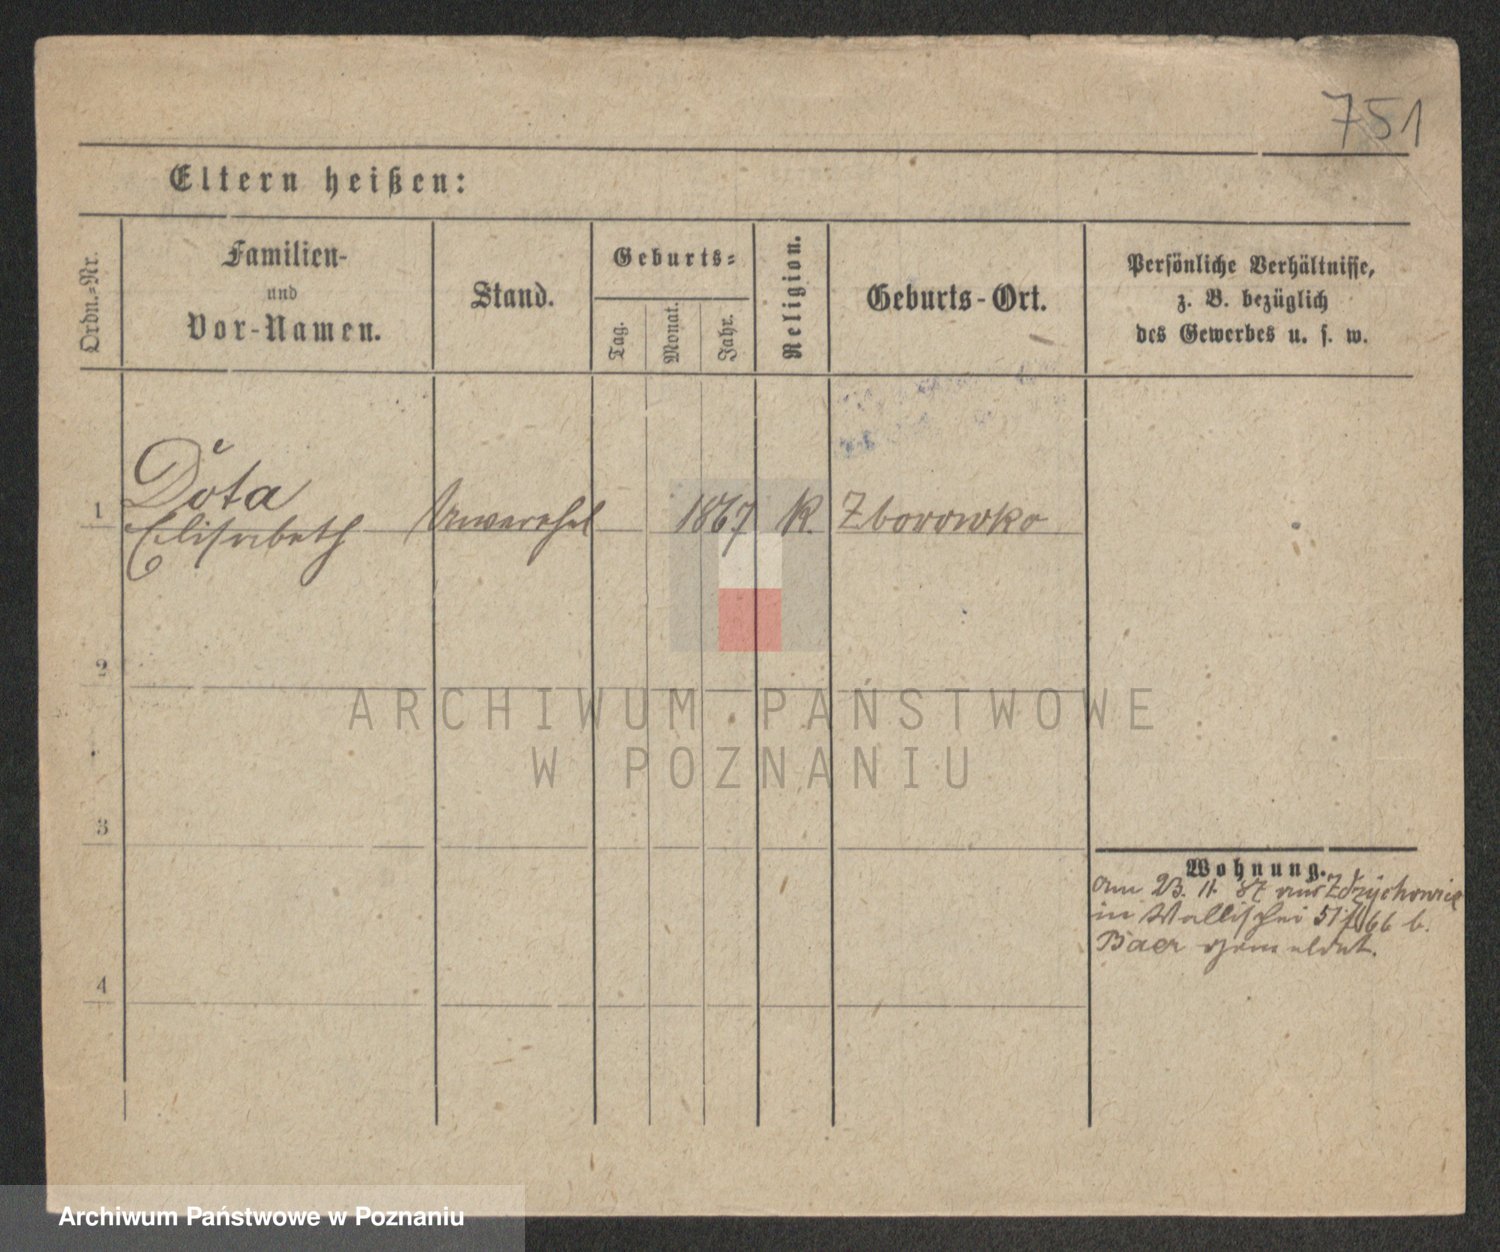 751
Eltern heißen:
Ordn.-Nr.
Familien-
und
Vor-Namen.
Stand.
Geburts-
Tag.
Monat.
Jahr.
Religion.
Geburts-Ort.
Persönliche Verhältnisse,
z. B. bezüglich
des Gewerbes u. s. w.
1
Dota
Elisabeth
Unverehel
1867
K.
Zborowko
2
3
4
Wohnung.
Am 23. 11. 87 aus
in Wallischei b.
Baer gemeldet.
ARCHIWUM PAŃSTWOWE
W POZNANIU
Archiwum Państwowe w Poznaniu